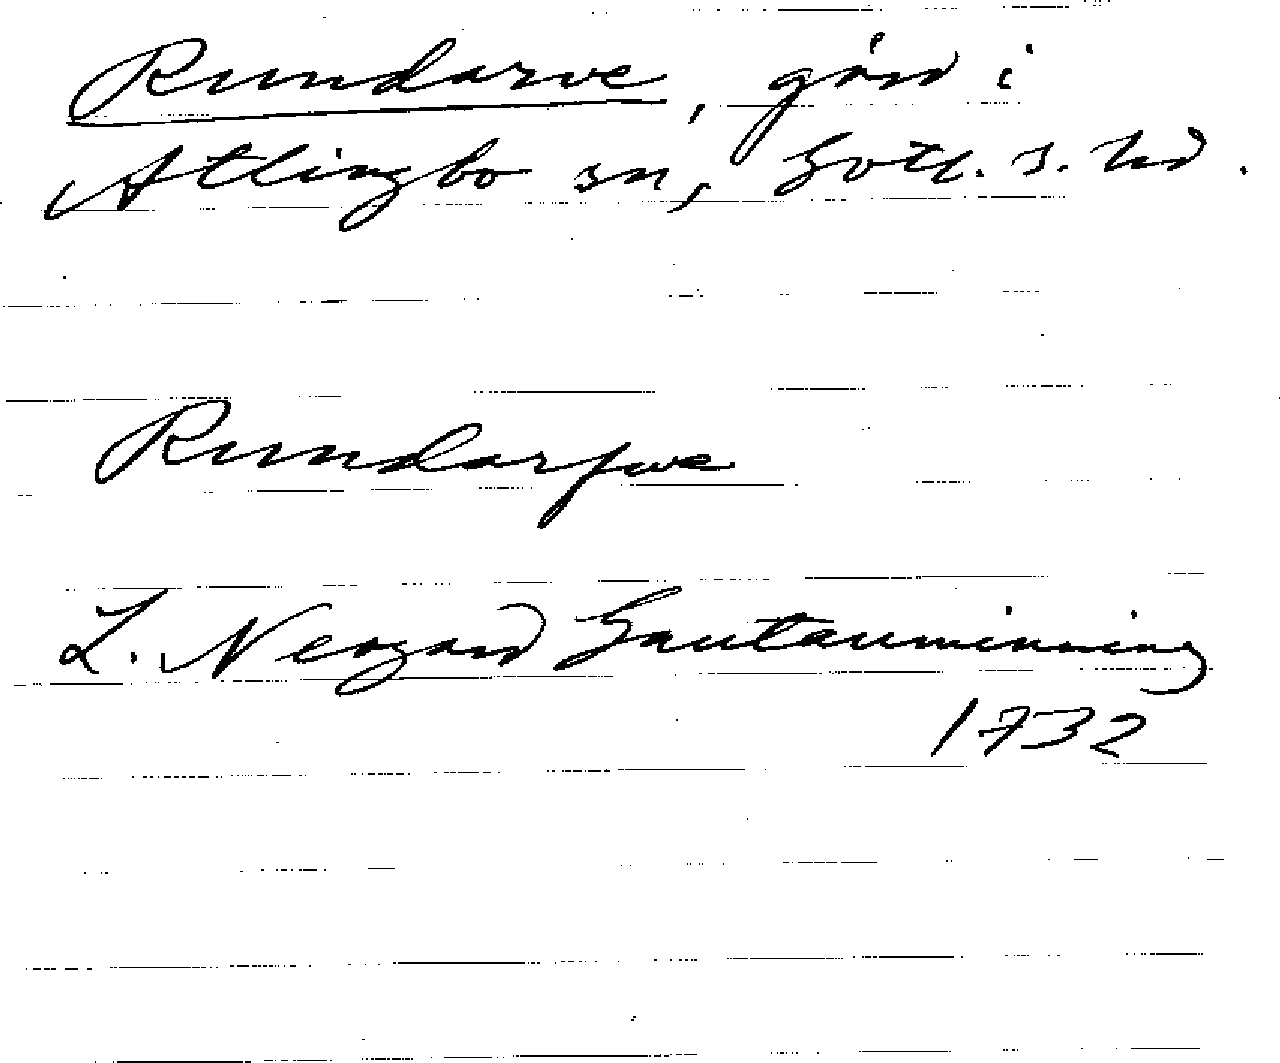 Rundarve, gård i
Atlingbo sn, Gotl. s. hd.
Rundarfve
L. Neogard Gautauminning
1732